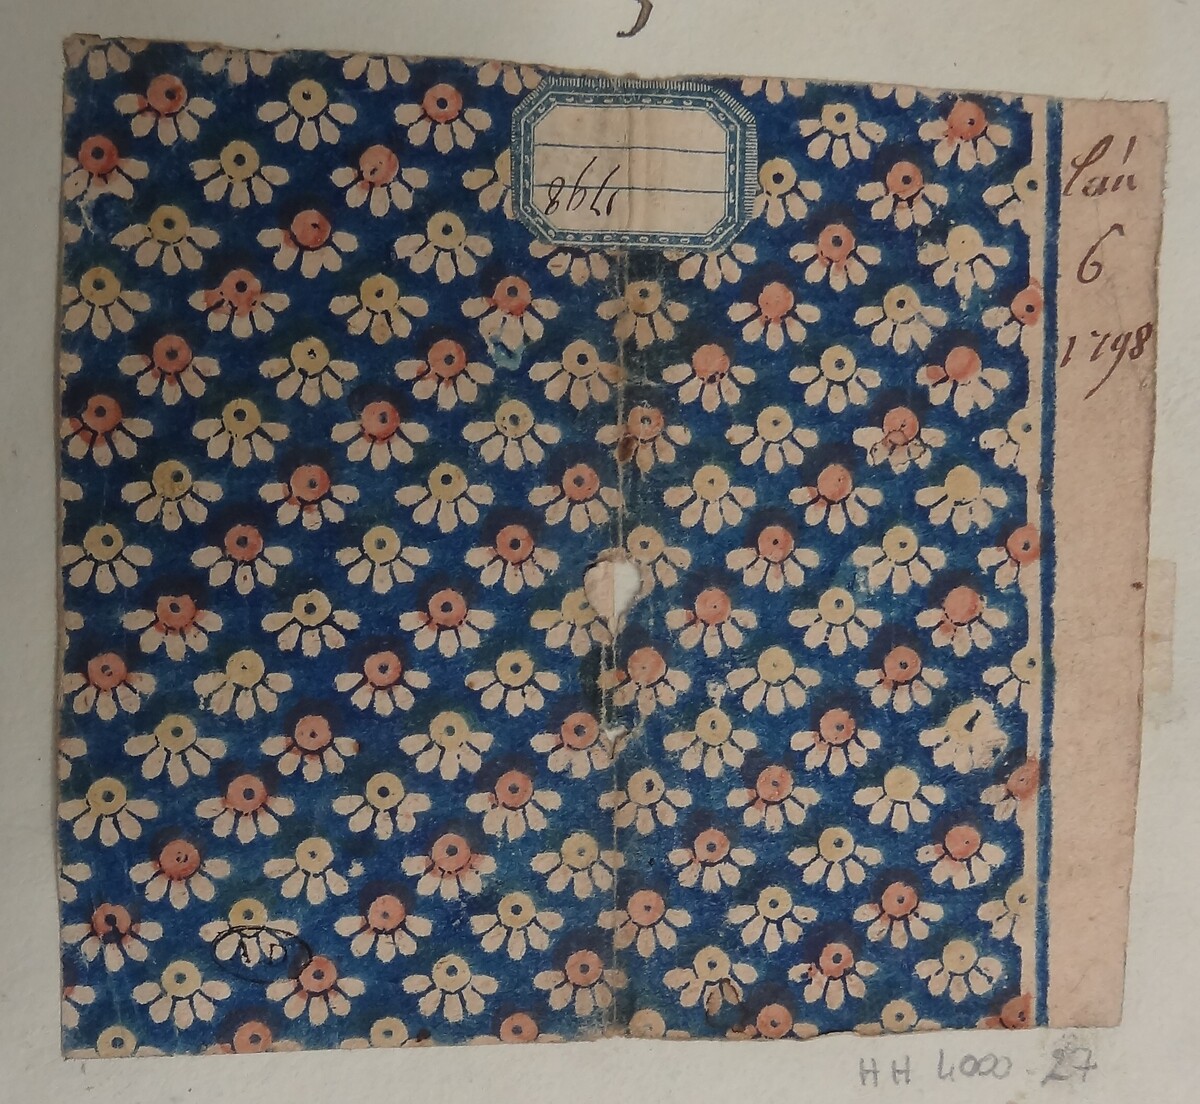 1798
l'an
6
1798
AD
HH 4000-27